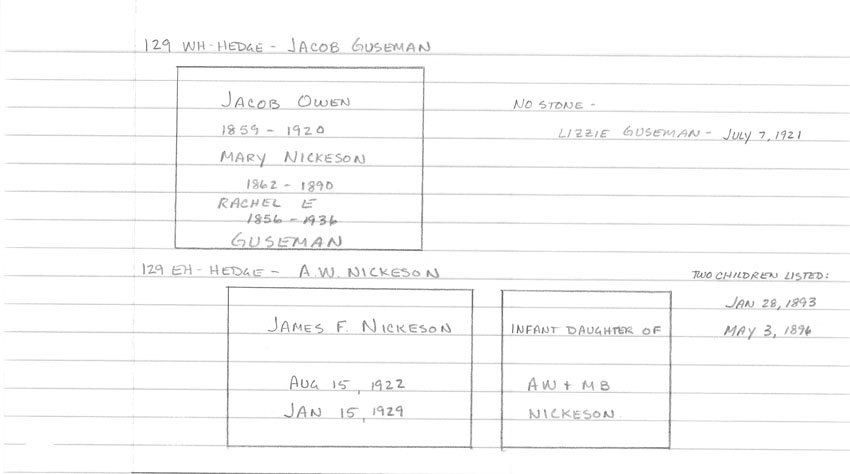 129 WH-HEDGE - JACOB GUSEMAN
JACOB OWEN
1859 - 1920
MARY NICKESON
1862 - 1890
RACHEL E
1856 - 1936
GUSEMAN
NO STONE -
LIZZIE GUSEMAN - JULY 7, 1921
129 EH-HEDGE - A.W. NICKESON
JAMES F. NICKESON
AUG 15, 1922
JAN 15, 1929
INFANT DAUGHTER OF
AW + MB
NICKESON
TWO CHILDREN LISTED:
JAN 28, 1893
MAY 3, 1896